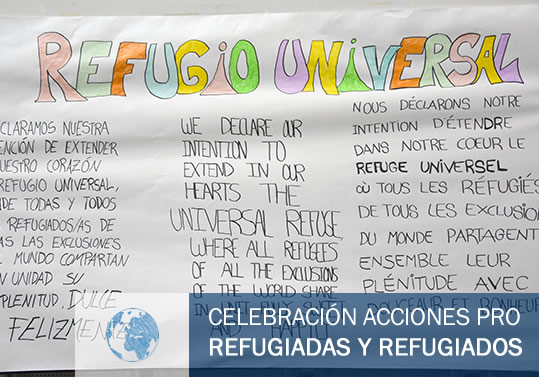 REFUGIO UNIVERSAL
CLARAMOS NUESTRA
ENCIÓN DE EXTENDER
NUESTRO CORAZÓN
REFUGIO UNIVERSAL,
DE TODAS Y TODOS
REFUGIADOS/AS DE
AS LAS EXCLUSIONES
MUNDO COMPARTAN
N UNIDAD SU
PLENITUD, DULCE
FELIZMENTE
WE DECLARE OUR
INTENTION TO
EXTEND IN OUR
HEARTS THE
UNIVERSAL REFUGE,
WHERE ALL REFUGEES
OF ALL THE EXCLUSIONS
OF THE WORLD SHARE
NOUS DÉCLARONS NOTRE
INTENTION D'ÉTENDRE
DANS NOTRE COEUR LE
REFUGE UNIVERSEL
OÙ TOUS LES RÉFUGIÉS
DE TOUS LES EXCLUSION
DU MONDE PARTAGENT
ENSEMBLE LEUR
PLÉNITUDE AVEC
DOUCEUR ET BONHEUR
CELEBRACIÓN ACCIONES PRO
REFUGIADAS Y REFUGIADOS